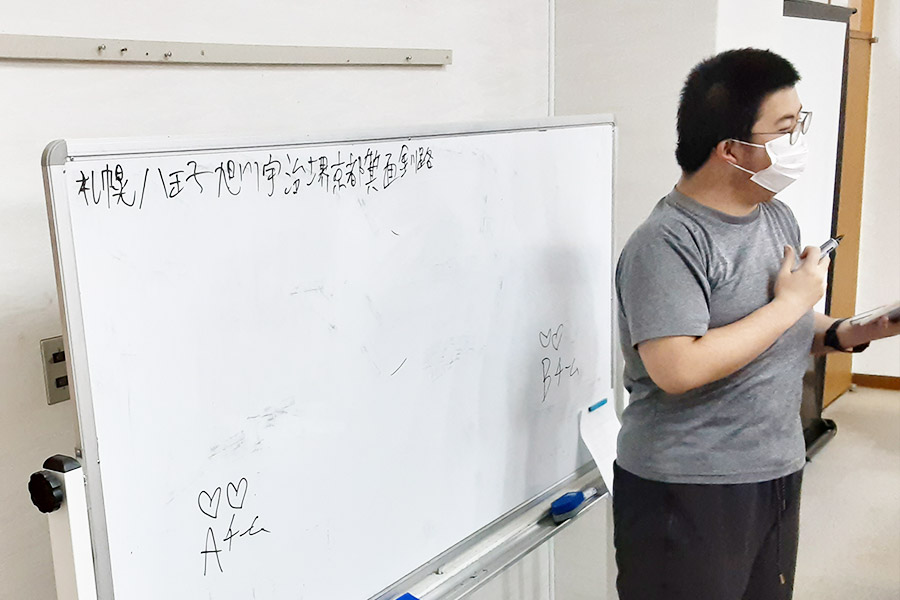 札幌八王子旭川宇治堺京都箕面釧路
Bチーム
Aチーム